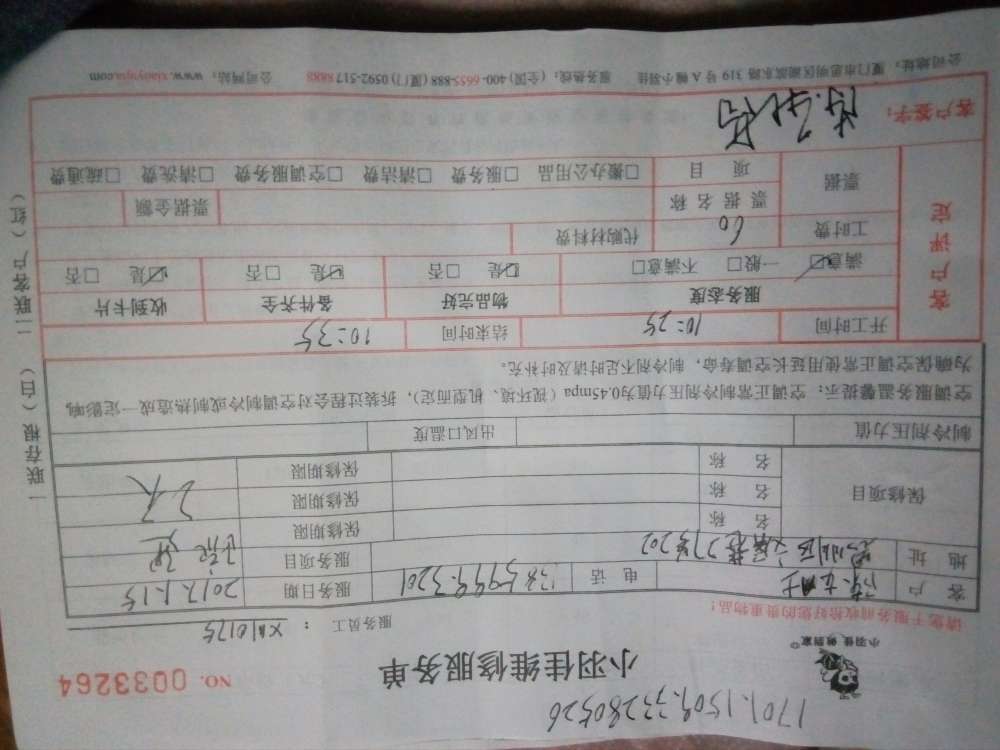 1701.1509.33280526
小羽佳 帮到家®
小羽佳维修服务单
NO. 0033264
请您于服务前收拾好您的贵重物品!
服务员工 : XM0175
客 户 陈女士 电 话 服务日期 2017.1.15
地 址 服务项目
保修项目 名 称 保修期限
名 称 保修期限
名 称 保修期限
制冷剂压力值 出风口温度
空调服务温馨提示: 空调正常制冷剂压力值为0.45mpa(视环境、机型而定), 拆装过程会对空调制冷或制热造成一定影响,
为确保空调正常使用延长空调寿命, 制冷剂不足时请及时补充。
开工时间 10:25 结束时间 10:35
客户评定 服务态度 物品完好 备件齐全 收到卡片
满意☑ 一般□ 不满意□ ☑是 □否 ☑是 □否 ☑是 □否
工时费 60 代购材料费
票据 票据名称 票据金额
项 目 □搬办公用品 □服务费 □清洁费 □空调服务费 □清洗费 □疏通费
客户签字:
公司地址: 厦门市思明区湖滨东路 319 号 A 幢小羽佳 服务热线: (全国) 400-6655-888 (厦门) 0592-517 8888 公司网站: www.xiaoyujia.com
一联存根(白) 二联客户(红)